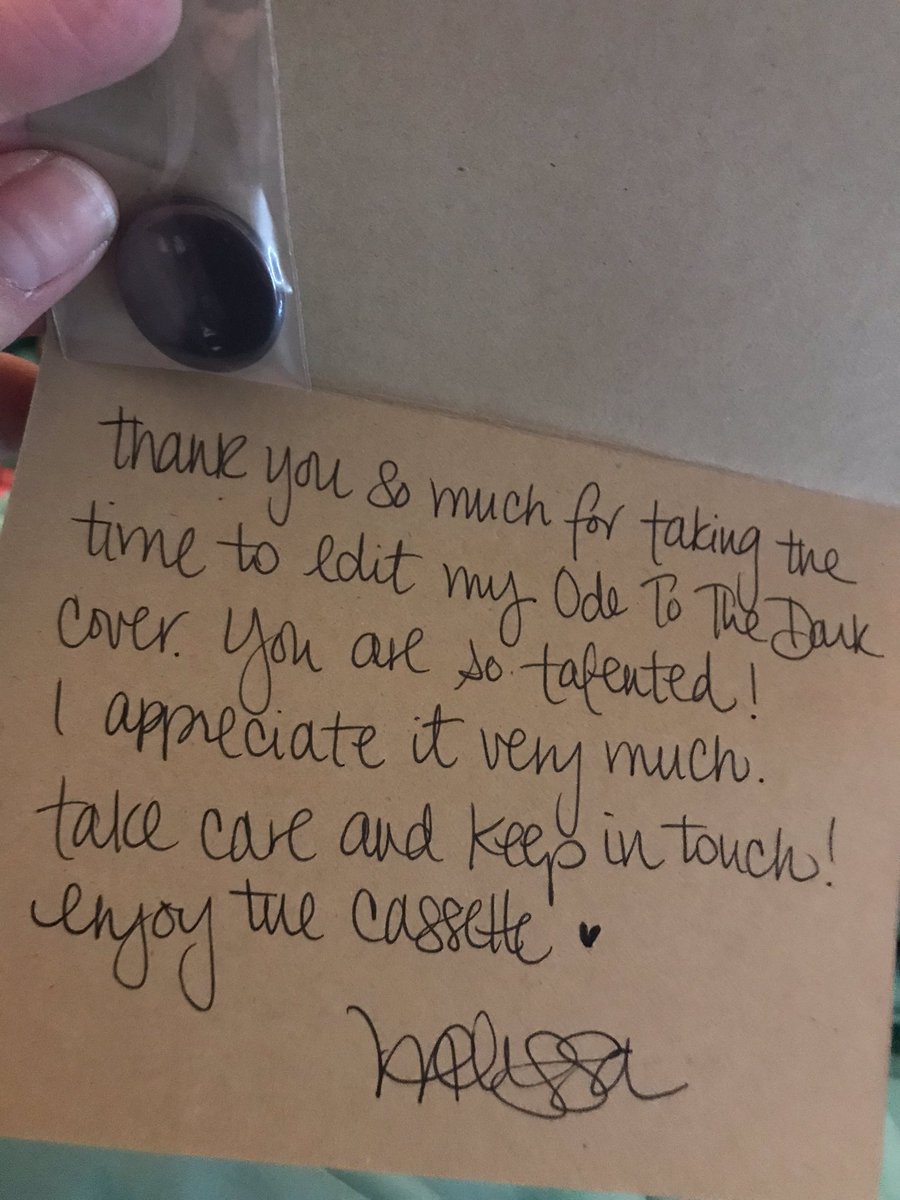 thank you so much for taking the
time to edit my Ode To The Dark
cover. You are so talented!
I appreciate it very much.
take care and keep in touch!
enjoy the cassette ♥
Melissa